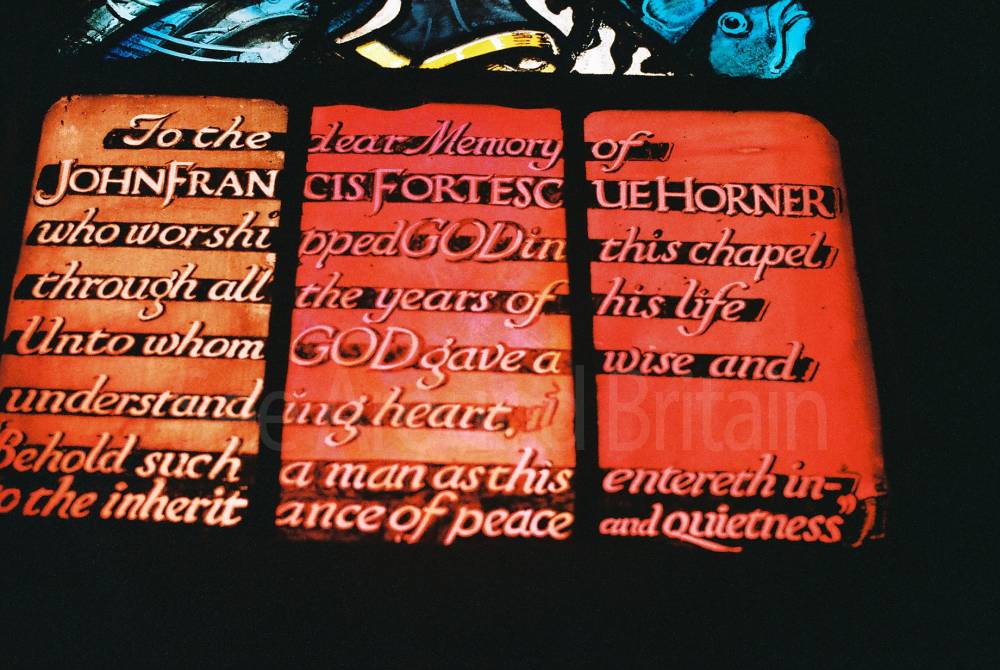 To the dear Memory of
JOHN FRANCIS FORTESCUE HORNER
who worshipped GOD in this chapel
through all the years of his life
Unto whom GOD gave a wise and
understanding heart.
Behold such a man as this entereth in-
to the inheritance of peace and Quietness”
Around Britain